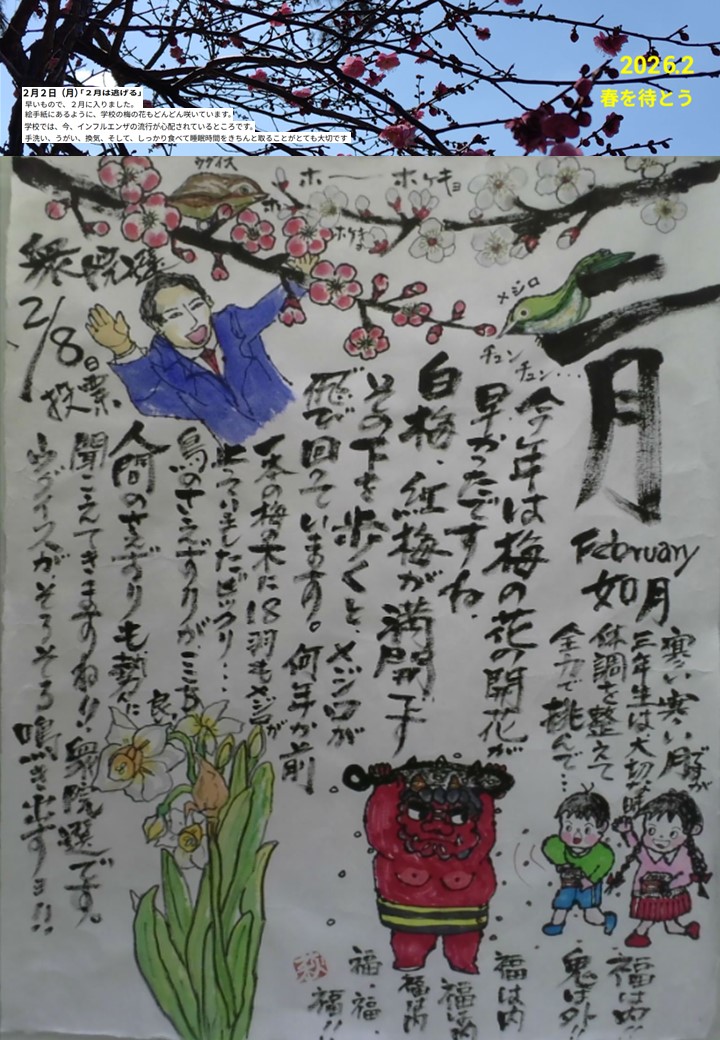 2026.2
春を待とう
２月２日（月）「２月は逃げる」
早いもので、２月に入りました。
絵手紙にあるように、学校の梅の花もどんどん咲いています。
学校では、今、インフルエンザの流行が心配されているところです。
手洗い、うがい、換気、そして、しっかり食べて睡眠時間をきちんと取ることがとても大切です
ウグイス
ホーホケキョ
ホケキョ
メジロ
チュン
チュン…
二月
February
如月
寒い寒い
三年生は大切な時
体調を整えて
全力で挑んで…
今年は梅の花の開花が
早かったですね。
白梅、紅梅が満開です
その下を歩くと、メジロが
飛び回っています。何年か前
一本の梅の木に18羽もメジロが
止っていましたビックリ…
鳥のさえずりが、こち
良い
人間のさえずりも勢に
聞こえてきますのね!!衆院選です。
ウグイスが、そろそろ鳴き出すヨ!!
衆院選
2/8日
投票
福は内!!
鬼は外!!
福は内
福は内
福は内
福・福・
福!!